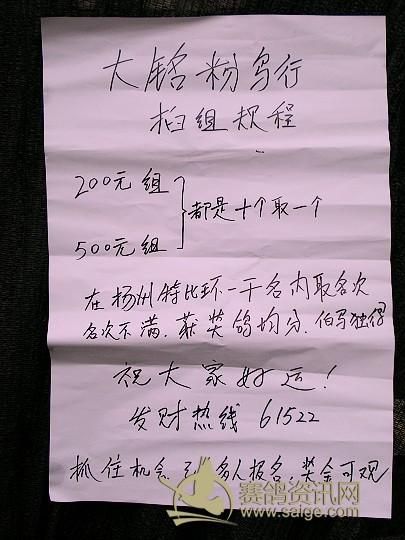 大铭粉鸟行
柏组规程
200元组
500元组
都是十个取一个
在扬州特比环一千名内取名次
名次不满.获奖鸽均分.伯马独得
祝大家好运!
发财热线 61522
抓住机会 多人报名.奖金可观
赛鸽资讯网
www.saige.com